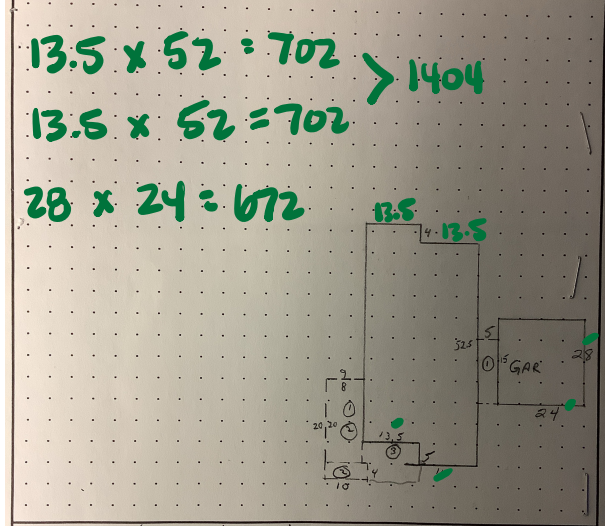 13.5 x 52 = 702
> 1404
13.5 x 52 = 702
28 x 24 = 672
13.5
4
13.5
5
28
1
15
GAR
24
9
8
1
20
20
2
13.5
3
5
2
4
10